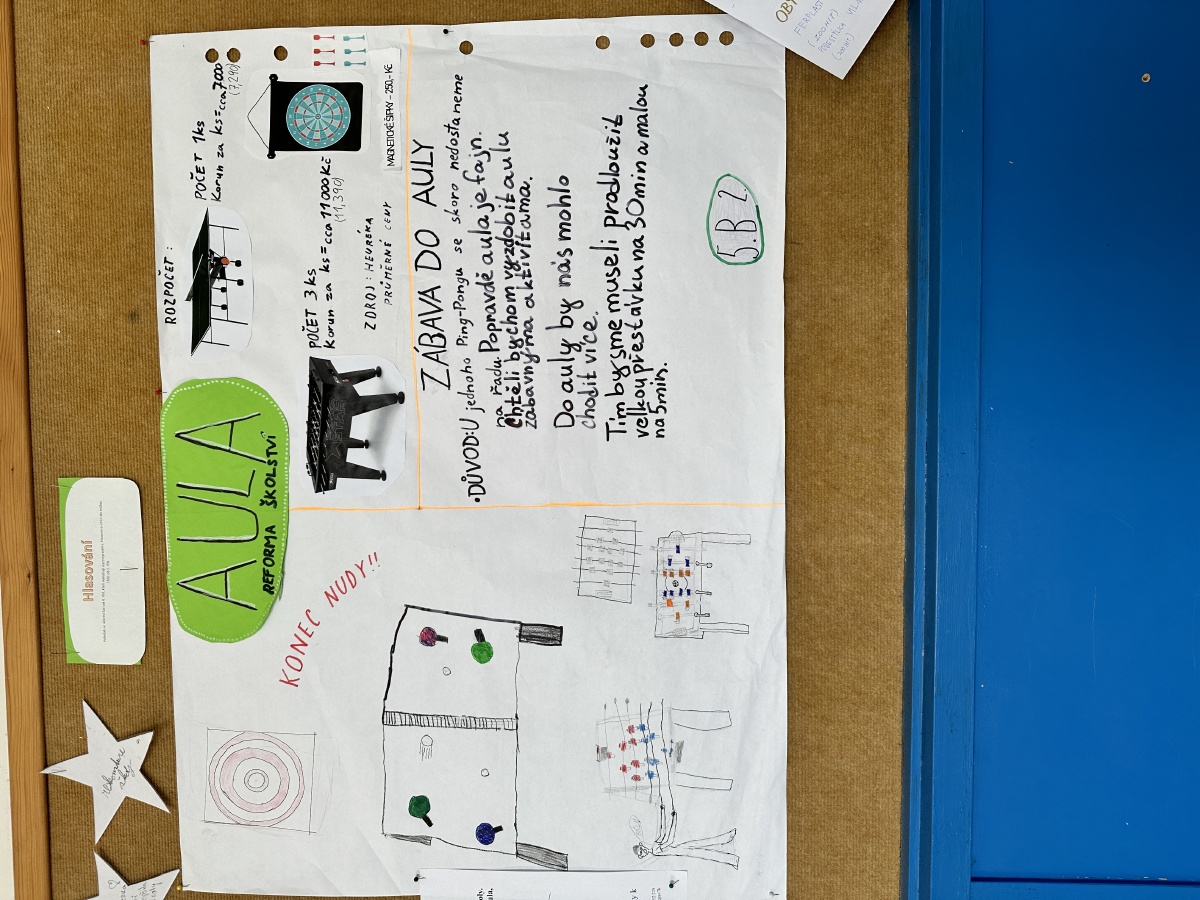 AULA
REFORMA ŠKOLSTVÍ
KONEC NUDY!!
ROZPOČET:
POČET 1ks
Korun za ks=cca 7000
(7,290)
POČET 3 ks
Korun za ks=cca 11 000 Kč
(11,390)
ZDROJ: HEURÉKA
PRŮMĚRNÉ CENY
MAGNETICKÉ ŠIPKY - 250,- Kč
ZÁBAVA DO AULY
•DŮVOD:U jednoho Ping-Pongu se skoro nedostaneme
na řadu. Popravdě aula je fajn.
Chtěli bychom vyzdobit aulu
zábavnýma aktivitama.
Do auly by nás mohlo
chodit více.
Tím by sme museli prodloužit
velkou přestávku na 30min a malou
na 5min.
5.B 2.
Hlasování